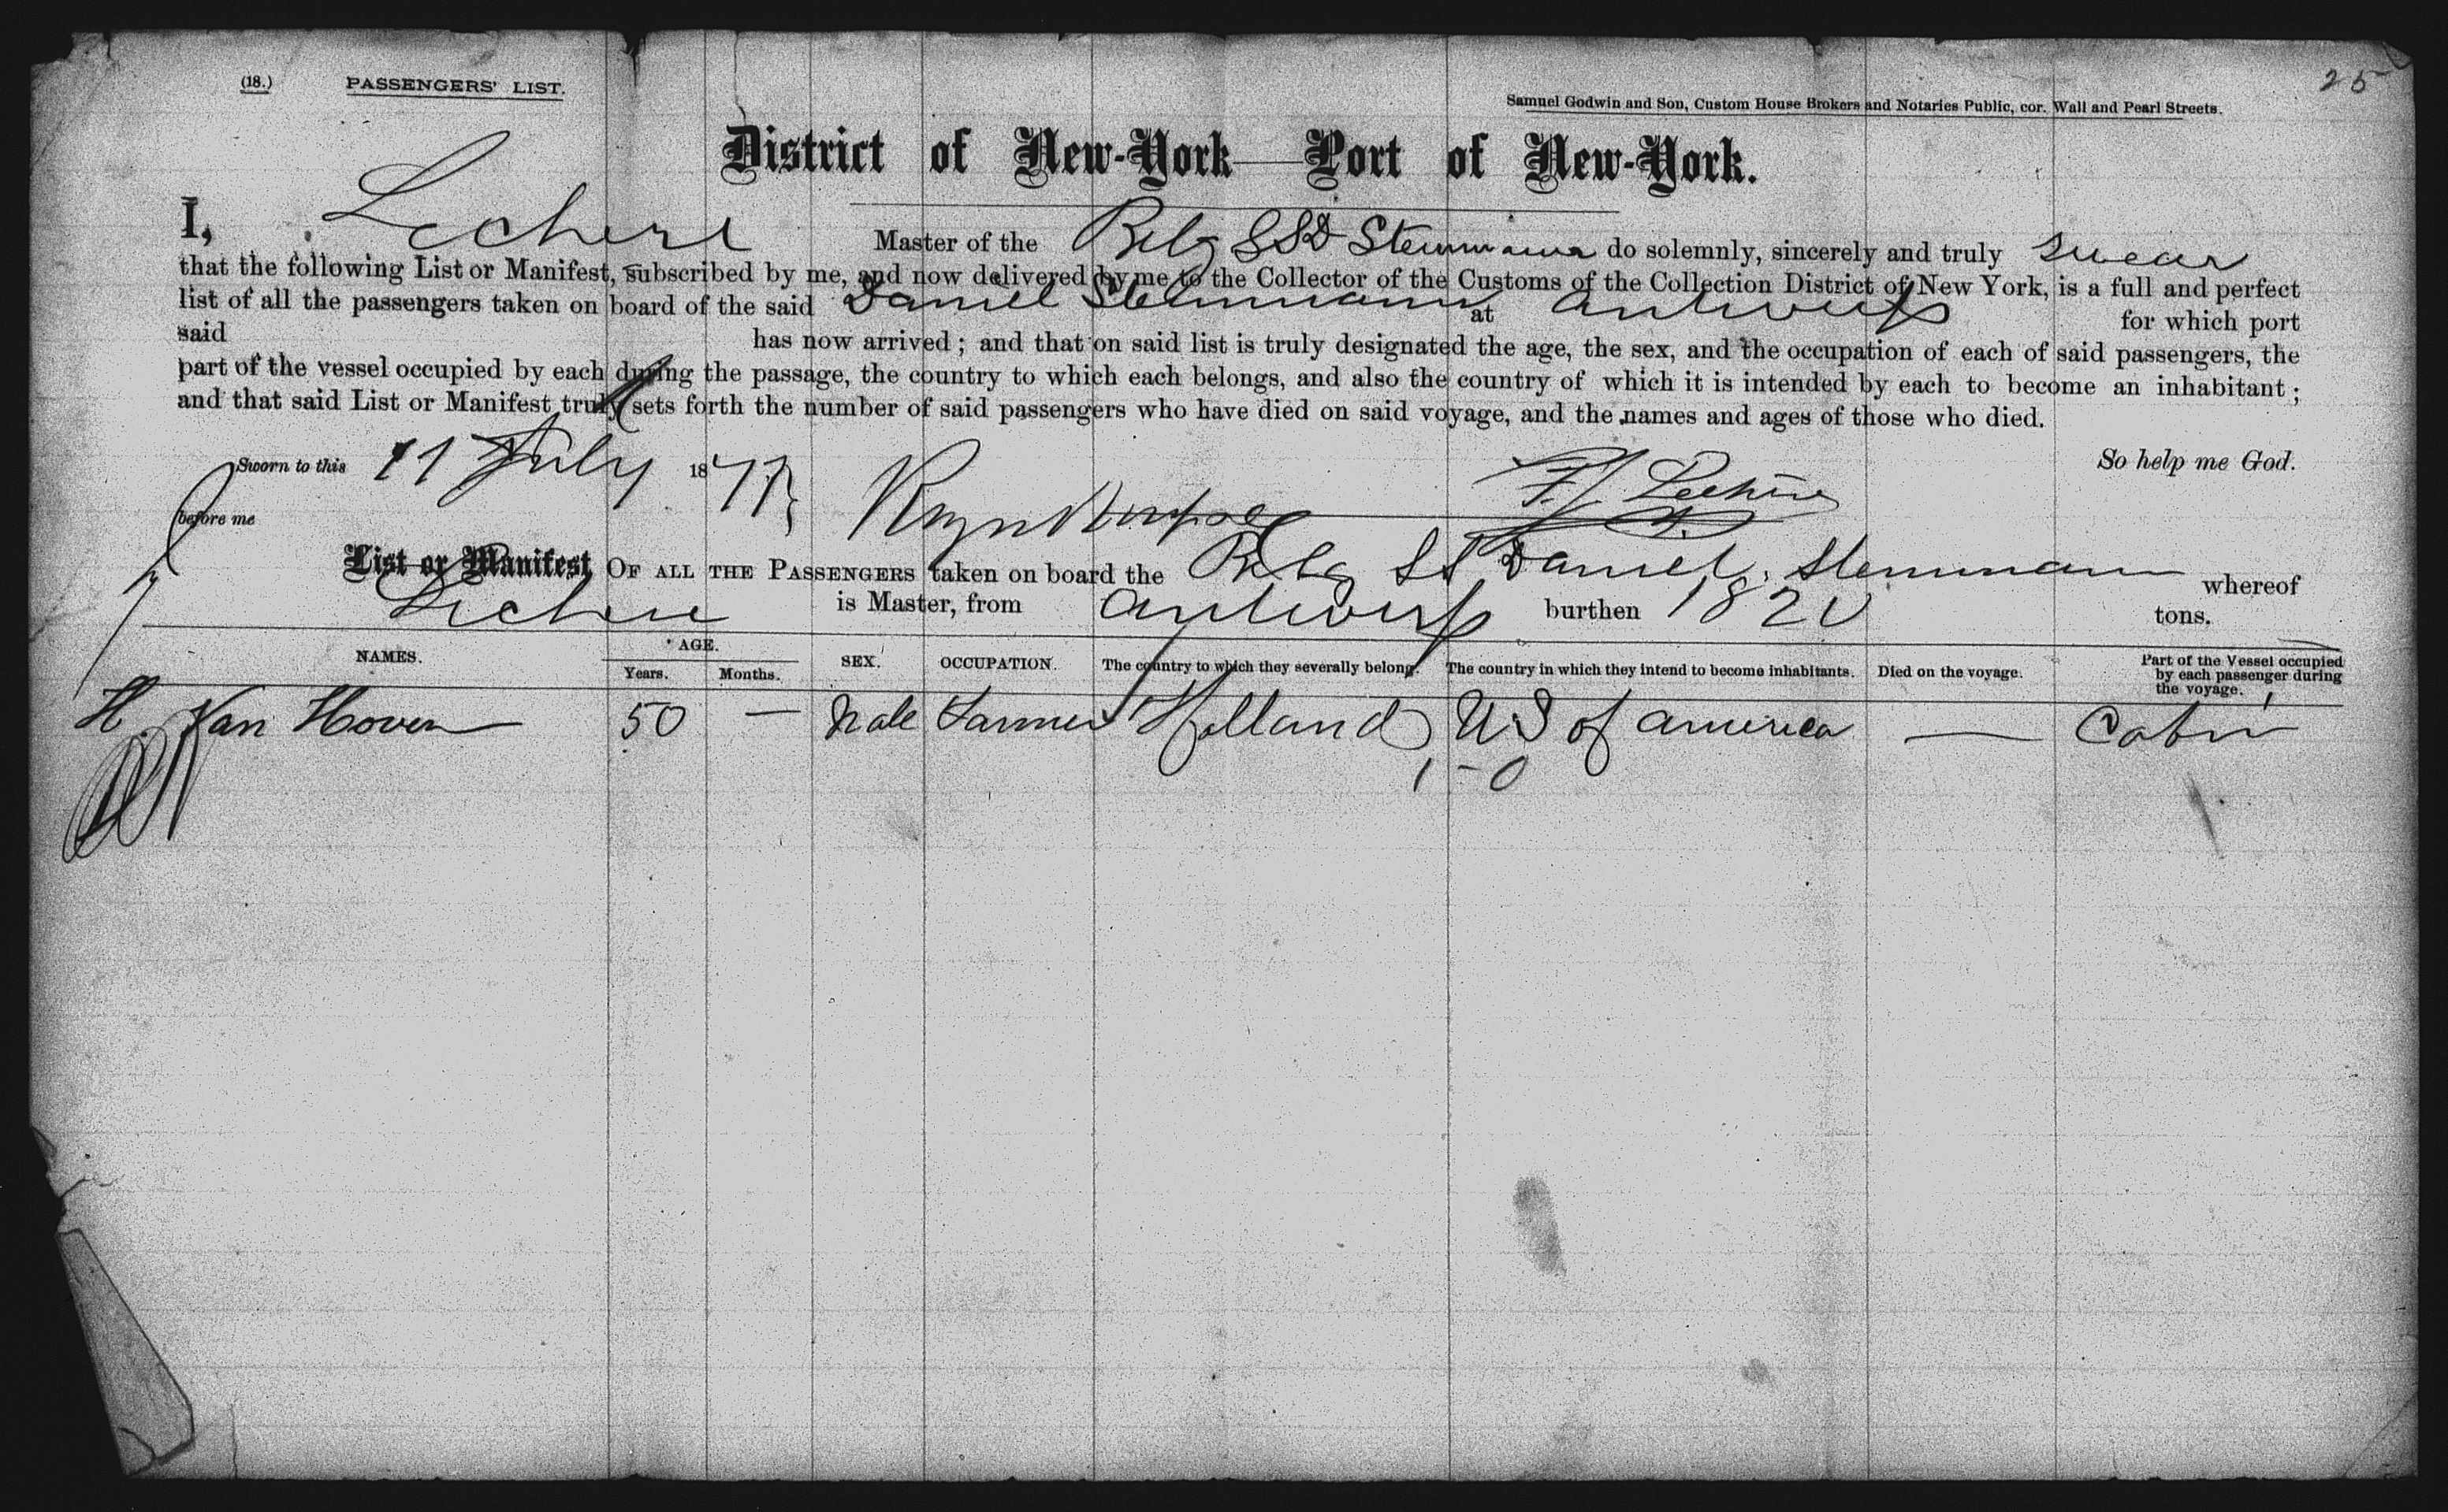 (18.) PASSENGERS' LIST. 25
Samuel Godwin and Son, Custom House Brokers and Notaries Public, cor. Wall and Pearl Streets.
District of New-York—Port of New-York.
I, Master of the Belg SS D Steinmann do solemnly, sincerely and truly swear
that the following List or Manifest, subscribed by me, and now delivered by me to the Collector of the Customs of the Collection District of New York, is a full and perfect
list of all the passengers taken on board of the said Daniel Steinmann at Antwerp for which port
said has now arrived; and that on said list is truly designated the age, the sex, and the occupation of each of said passengers, the
part of the vessel occupied by each during the passage, the country to which each belongs, and also the country of which it is intended by each to become an inhabitant;
and that said List or Manifest truly sets forth the number of said passengers who have died on said voyage, and the names and ages of those who died.
Sworn to this 11 July 1877 So help me God.
before me
List or Manifest OF ALL THE PASSENGERS taken on board the Belg SS Daniel Steinmann whereof
is Master, from Antwerp burthen tons.
NAMES. AGE. Years. Months. SEX. OCCUPATION. The country to which they severally belong. The country in which they intend to become inhabitants. Died on the voyage. Part of the Vessel occupied by each passenger during the voyage.
H. Van Hoven 50 — Male Farmer Holland US of America — Cabin
1-0